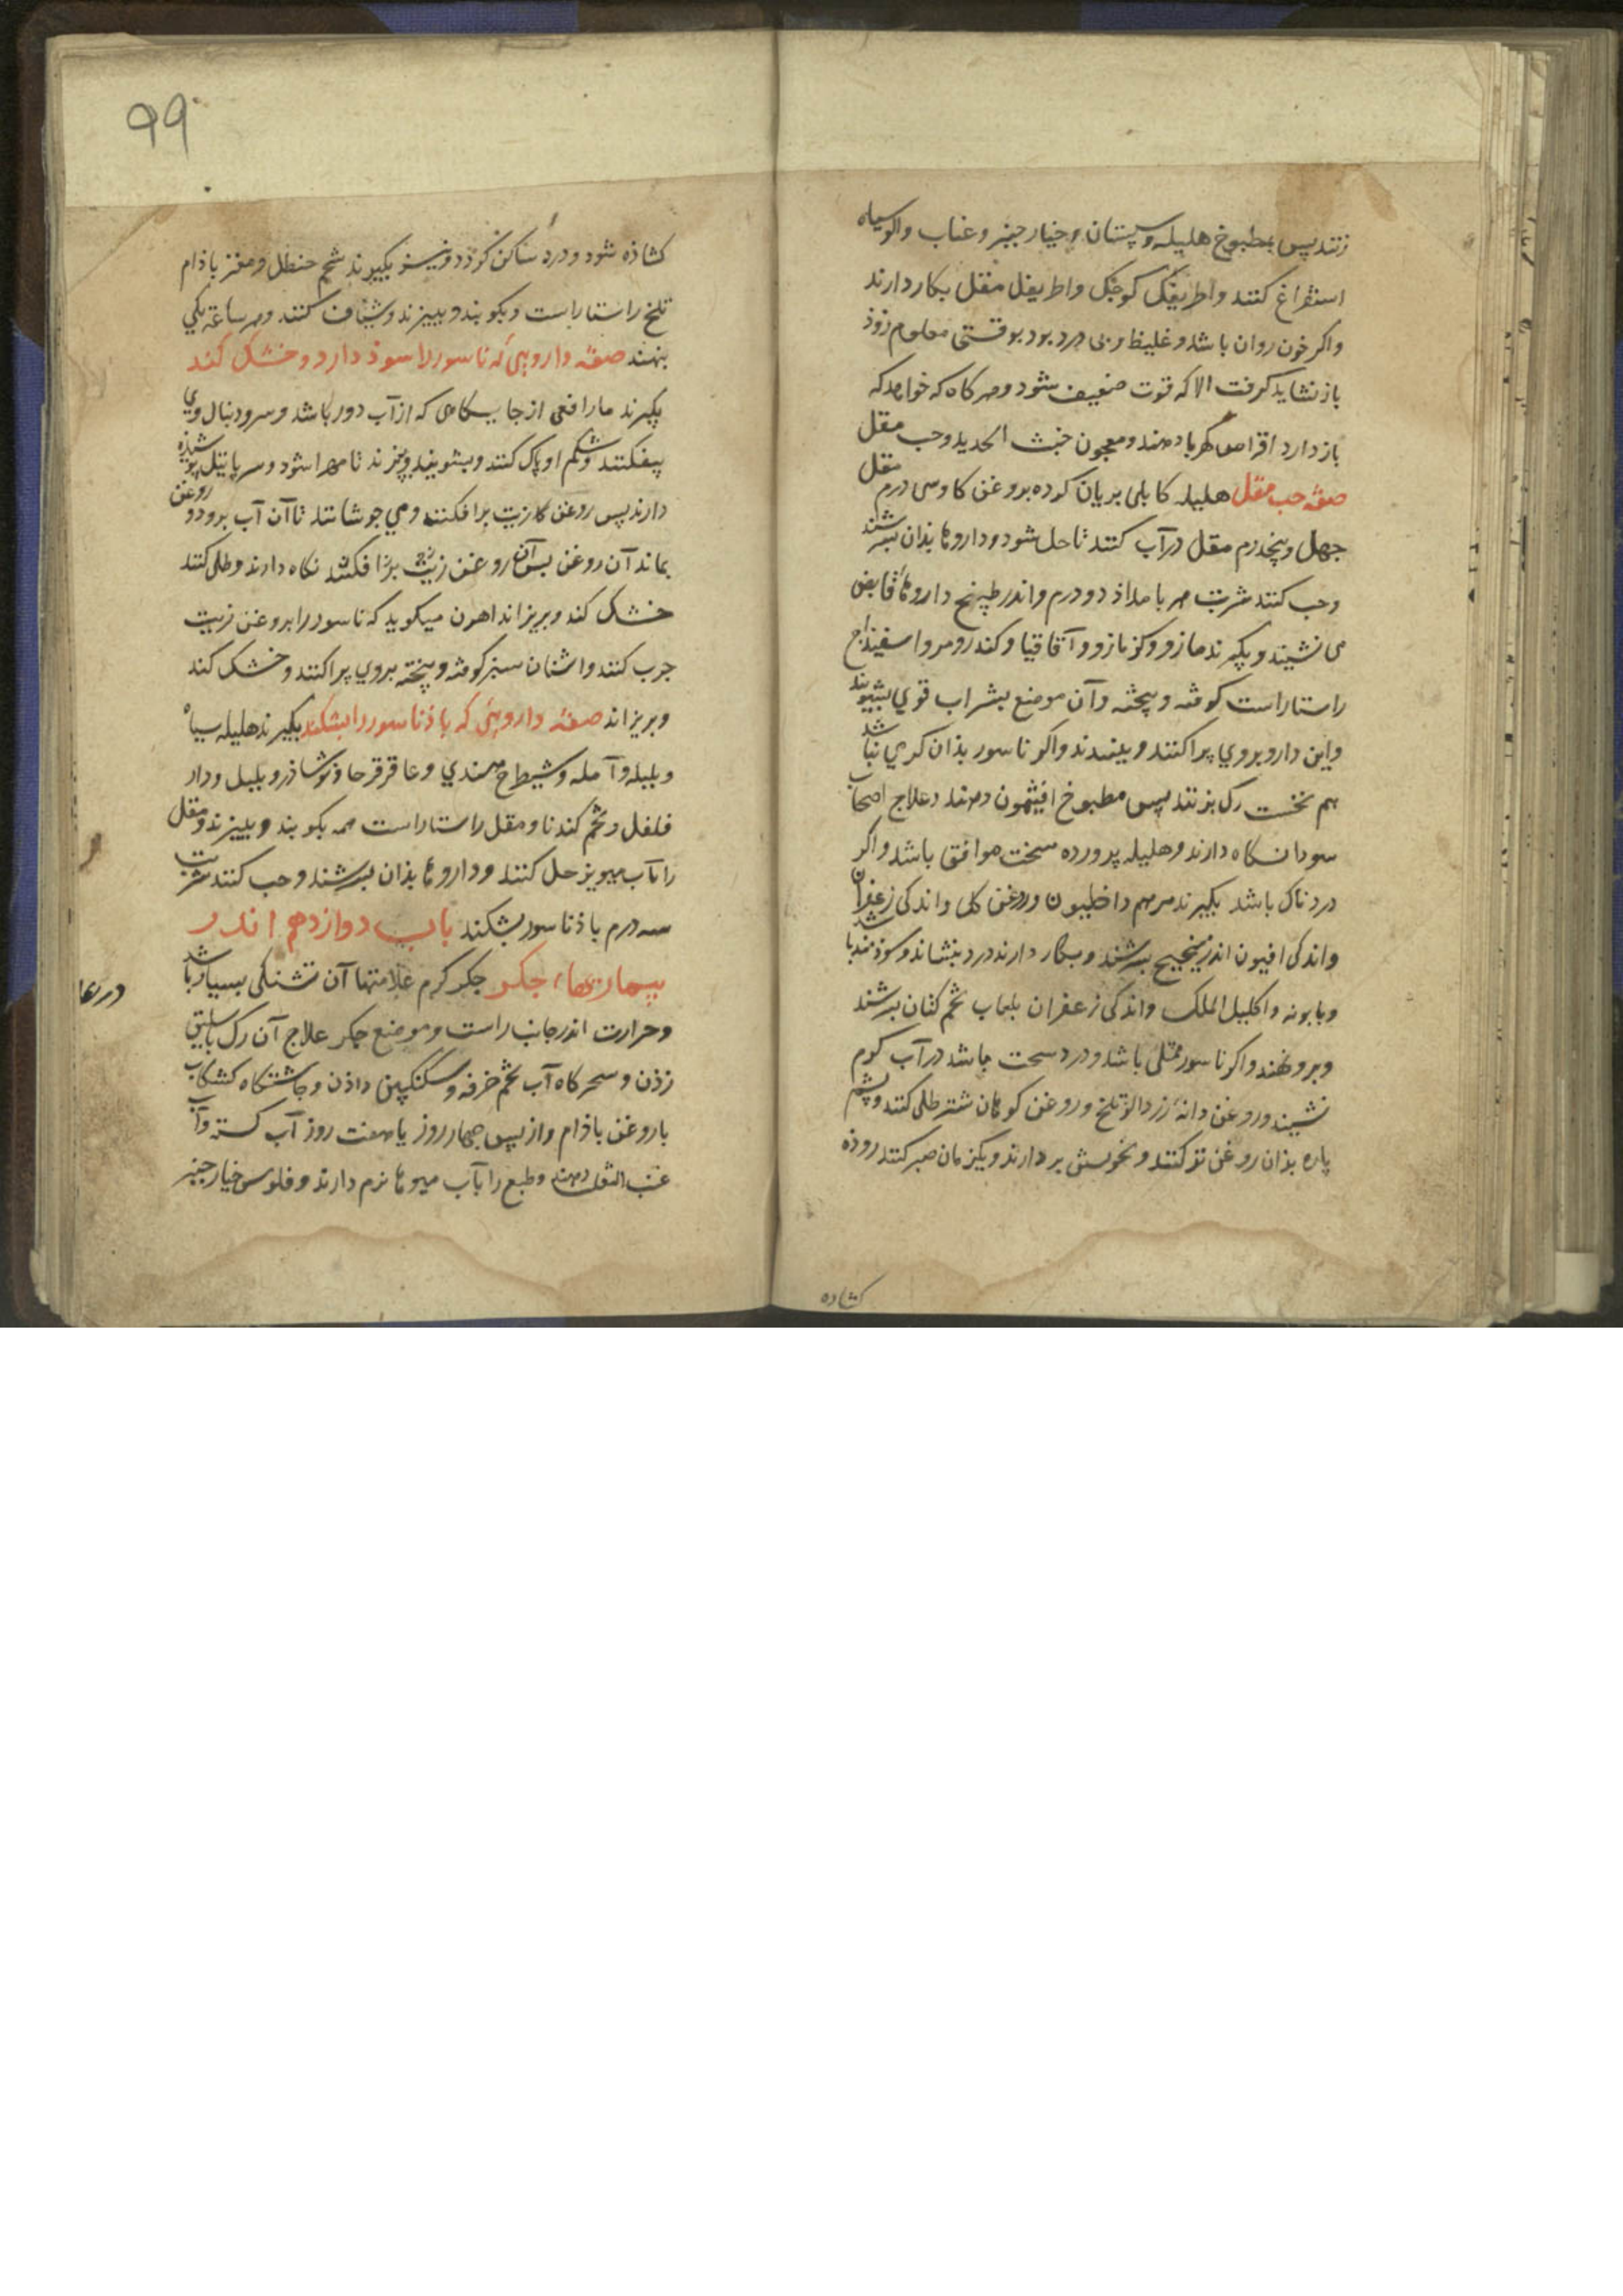 زنند پس بمطبوخ هلیله وسپستان وخیار جنبر وعناب والو سیاه
استفراغ کنند واطریفل کوجک واطریفل مقل بکار دارند
واکر خون روان باشد وغلیظ وبی درد بود بوقتی معلوم زوذ
باز نشاید کرفت الا که قوت ضعیف شود وهر کاه که خواهد که
باز دارد اقراص کهربا دهند ومعجون خبث الحدید وحب مقل
صفه حب مقل هلیله کابلی بریان کرده بروغن کاو سی درم مقل
جهل وپنجدرم مقل در آب کنند تا حل شود وداروها بذان بسرشند
وحب کنند شربت هر بامداذ دو درم واندر طبیخ داروهاء قابض
می نشیند وبکیرند مازو وکزمازو وآقاقیا وکندر ومر واسفیذاج
راستا راست کوفته وبیخته وآن موضع بشراب قوی بشویند
واین دارو بروی پراکنند وببندند واکر ناسور بذان کرمی نباشد
هم نخست رک بزنند پس مطبوخ افتیمون دهند وعلاج اصحاب
سودا نکاه دارند وهلیله پرورده سخت موافق باشد واکر
دردناک باشد بکیرند مرهم داخلیون وروغن کل واندکی زعفران
واندکی افیون اندر میبختج بسرشند وبکار دارند درد بنشاند وسوذمند باشد
وبابونه واکلیل الملک واندکی زعفران بلعاب تخم کتان بسرشند
وبرو نهند واکر ناسور ممتلی باشد ودرد سخت باشد در آب کرم
نشیند وروغن دانه زردالو تلخ وروغن کوهان شتر طلی کنند وپشم
پاره بذان روغن تر کنند وبخویشتن بردارند ویکزمان صبر کنند روذه
کشاده
99
کشاذه شود ودرد ساکن کردد ونیز بکیرند شحم حنظل ومغز باذام
تلخ راستا راست وبکوبند وببیزند وشیاف کنند وهر ساعة یکی
بنهند صفه داروئی که ناسور را سوذ دارد وخشک کند
بکیرند مار افعی از جایکاهی که از آب دور باشد وسر ودنبال وی
بیفکنند وشکم او پاک کنند وبشویند وبپزند تا مهرا شود وسر پاتیل پوشیذه
دارند پس روغن زیت برافکنند ومی جوشانند تا آن آب برود وروغن
بماند آن روغن پس آن روغن زیت برافکنند نکاه دارند وطلی کنند
خشک کند وبریزاند اهرن میکوید که ناسور را بروغن زیت
جرب کنند واشنان سبز کوفته وبیخته بروی پراکنند وخشک کند
وبریزاند صفه داروئی که باذ ناسور را بشکند بکیرند هلیله سیاه
وبلیله وآمله وشیطرج هندی وعاقرقرحا ونوشاذر وبلبل ودار
فلفل وتخم کندنا ومقل راستا راست همه بکوبند وببیزند ومقل
را بآب میویز حل کنند وداروها بذان بسرشند وحب کنند شربت
سه درم باذ ناسور بشکند باب دوازدهم اندر
بیماریهاء جکر جکر کرم علامتها آن تشنکی بسیار باشد
در بیما
وحرارت اندر جانب راست وموضع جکر علاج آن رک باسلیق
زذن وسحرکاه آب تخم خرفه وسکنکبین داذن وجاشتکاه کشکاب
با روغن باذام واز پس جهار روز یا هفت روز آب کسنه وآب
عنب الثعلب دهند وطبع را بآب میوها نرم دارند وفلوس خیار جنبر